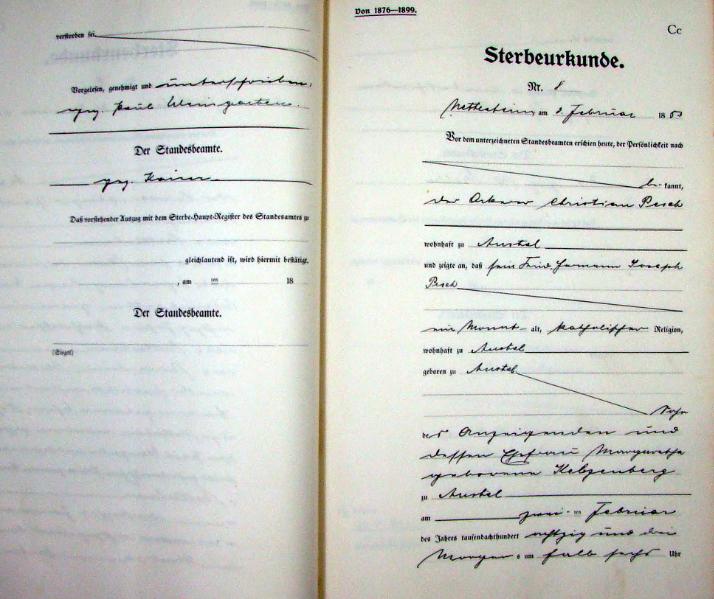 verstorben sei.
Vorgelesen, genehmigt und unterschrieben.
gez. Paul Weingarten.
Der Standesbeamte.
gez. Kaiser
Daß vorstehender Auszug mit dem Sterbe-Haupt-Register des Standesamtes zu
gleichlautend ist, wird hiermit bestätigt.
, am ten 18
Der Standesbeamte.
(Siegel)
Von 1876—1899.
Cc
Sterbeurkunde.
Nr. 8
Nettesheim am 2. Februar 1883
Vor dem unterzeichneten Standesbeamten erschien heute, der Persönlichkeit nach
be- kannt,
der Ackerer Christian Pesch
wohnhaft zu Anstel
und zeigte an, daß sein Kind Hermann Joseph
Pesch
ein Monat alt, katholischer Religion,
wohnhaft zu Anstel
geboren zu Anstel
Sohn
des Anzeigenden und
dessen Ehefrau Margaretha
geborene
zu Anstel
am zwei ten Februar
des Jahres tausendachthundert achtzig und drei
Morgens um halb sechs Uhr